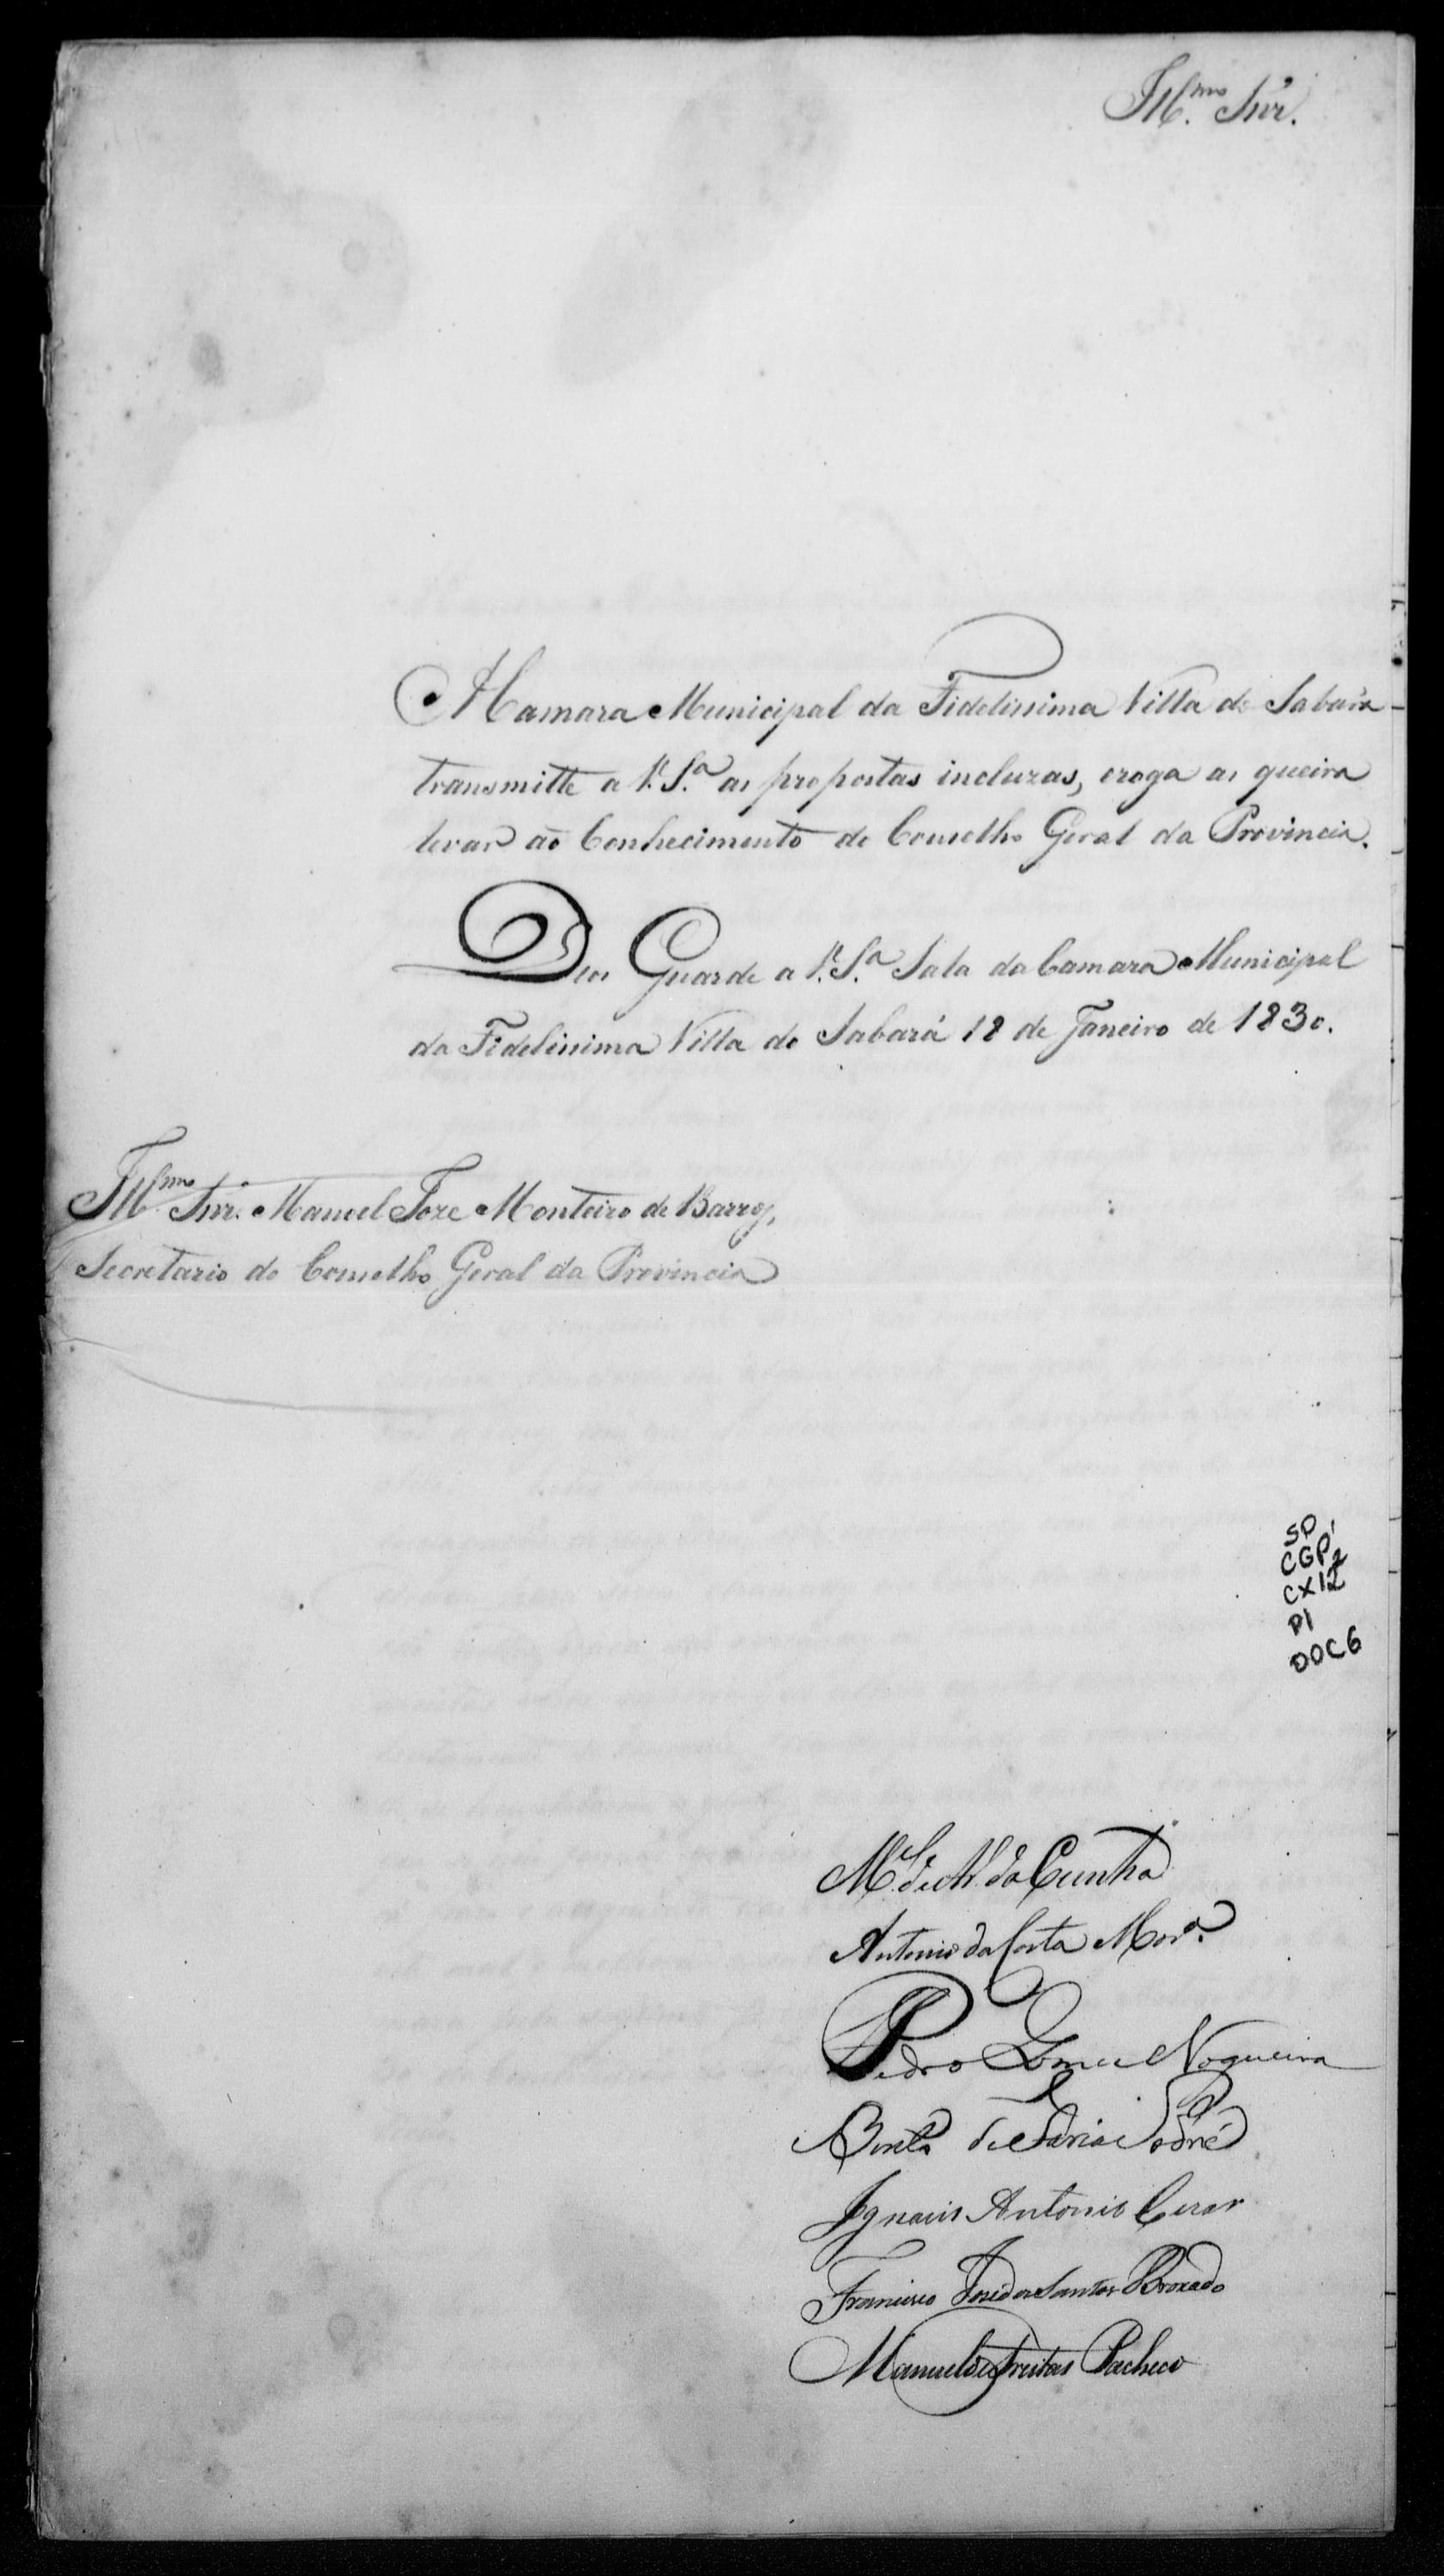 Ill.mo Snr.
A Camara Municipal da Fidelissima Villa do Sabará
transmitte a V. S.a as propostas incluzas, e roga as queira
levar ao Conhecimento do Conselho Geral da Provincia.
Deos Guarde a V. S.a Sala da Camara Municipal
da Fidelissima Villa do Sabará 18 de Janeiro de 1830.
Ill.mo Snr. Manoel Joze Monteiro de Barros,
Secretario do Conselho Geral da Provincia
SP
CGP1
CX12
P1
DOC6
M.el de da Cunha
Antonio da Costa Mor.a
Pedro Gomes Nogueira
Bento de Faria Sodré
Ignacio Antonio Cezar
Francisco José dos Santos Broxado
Manuel de Freitas Pacheco